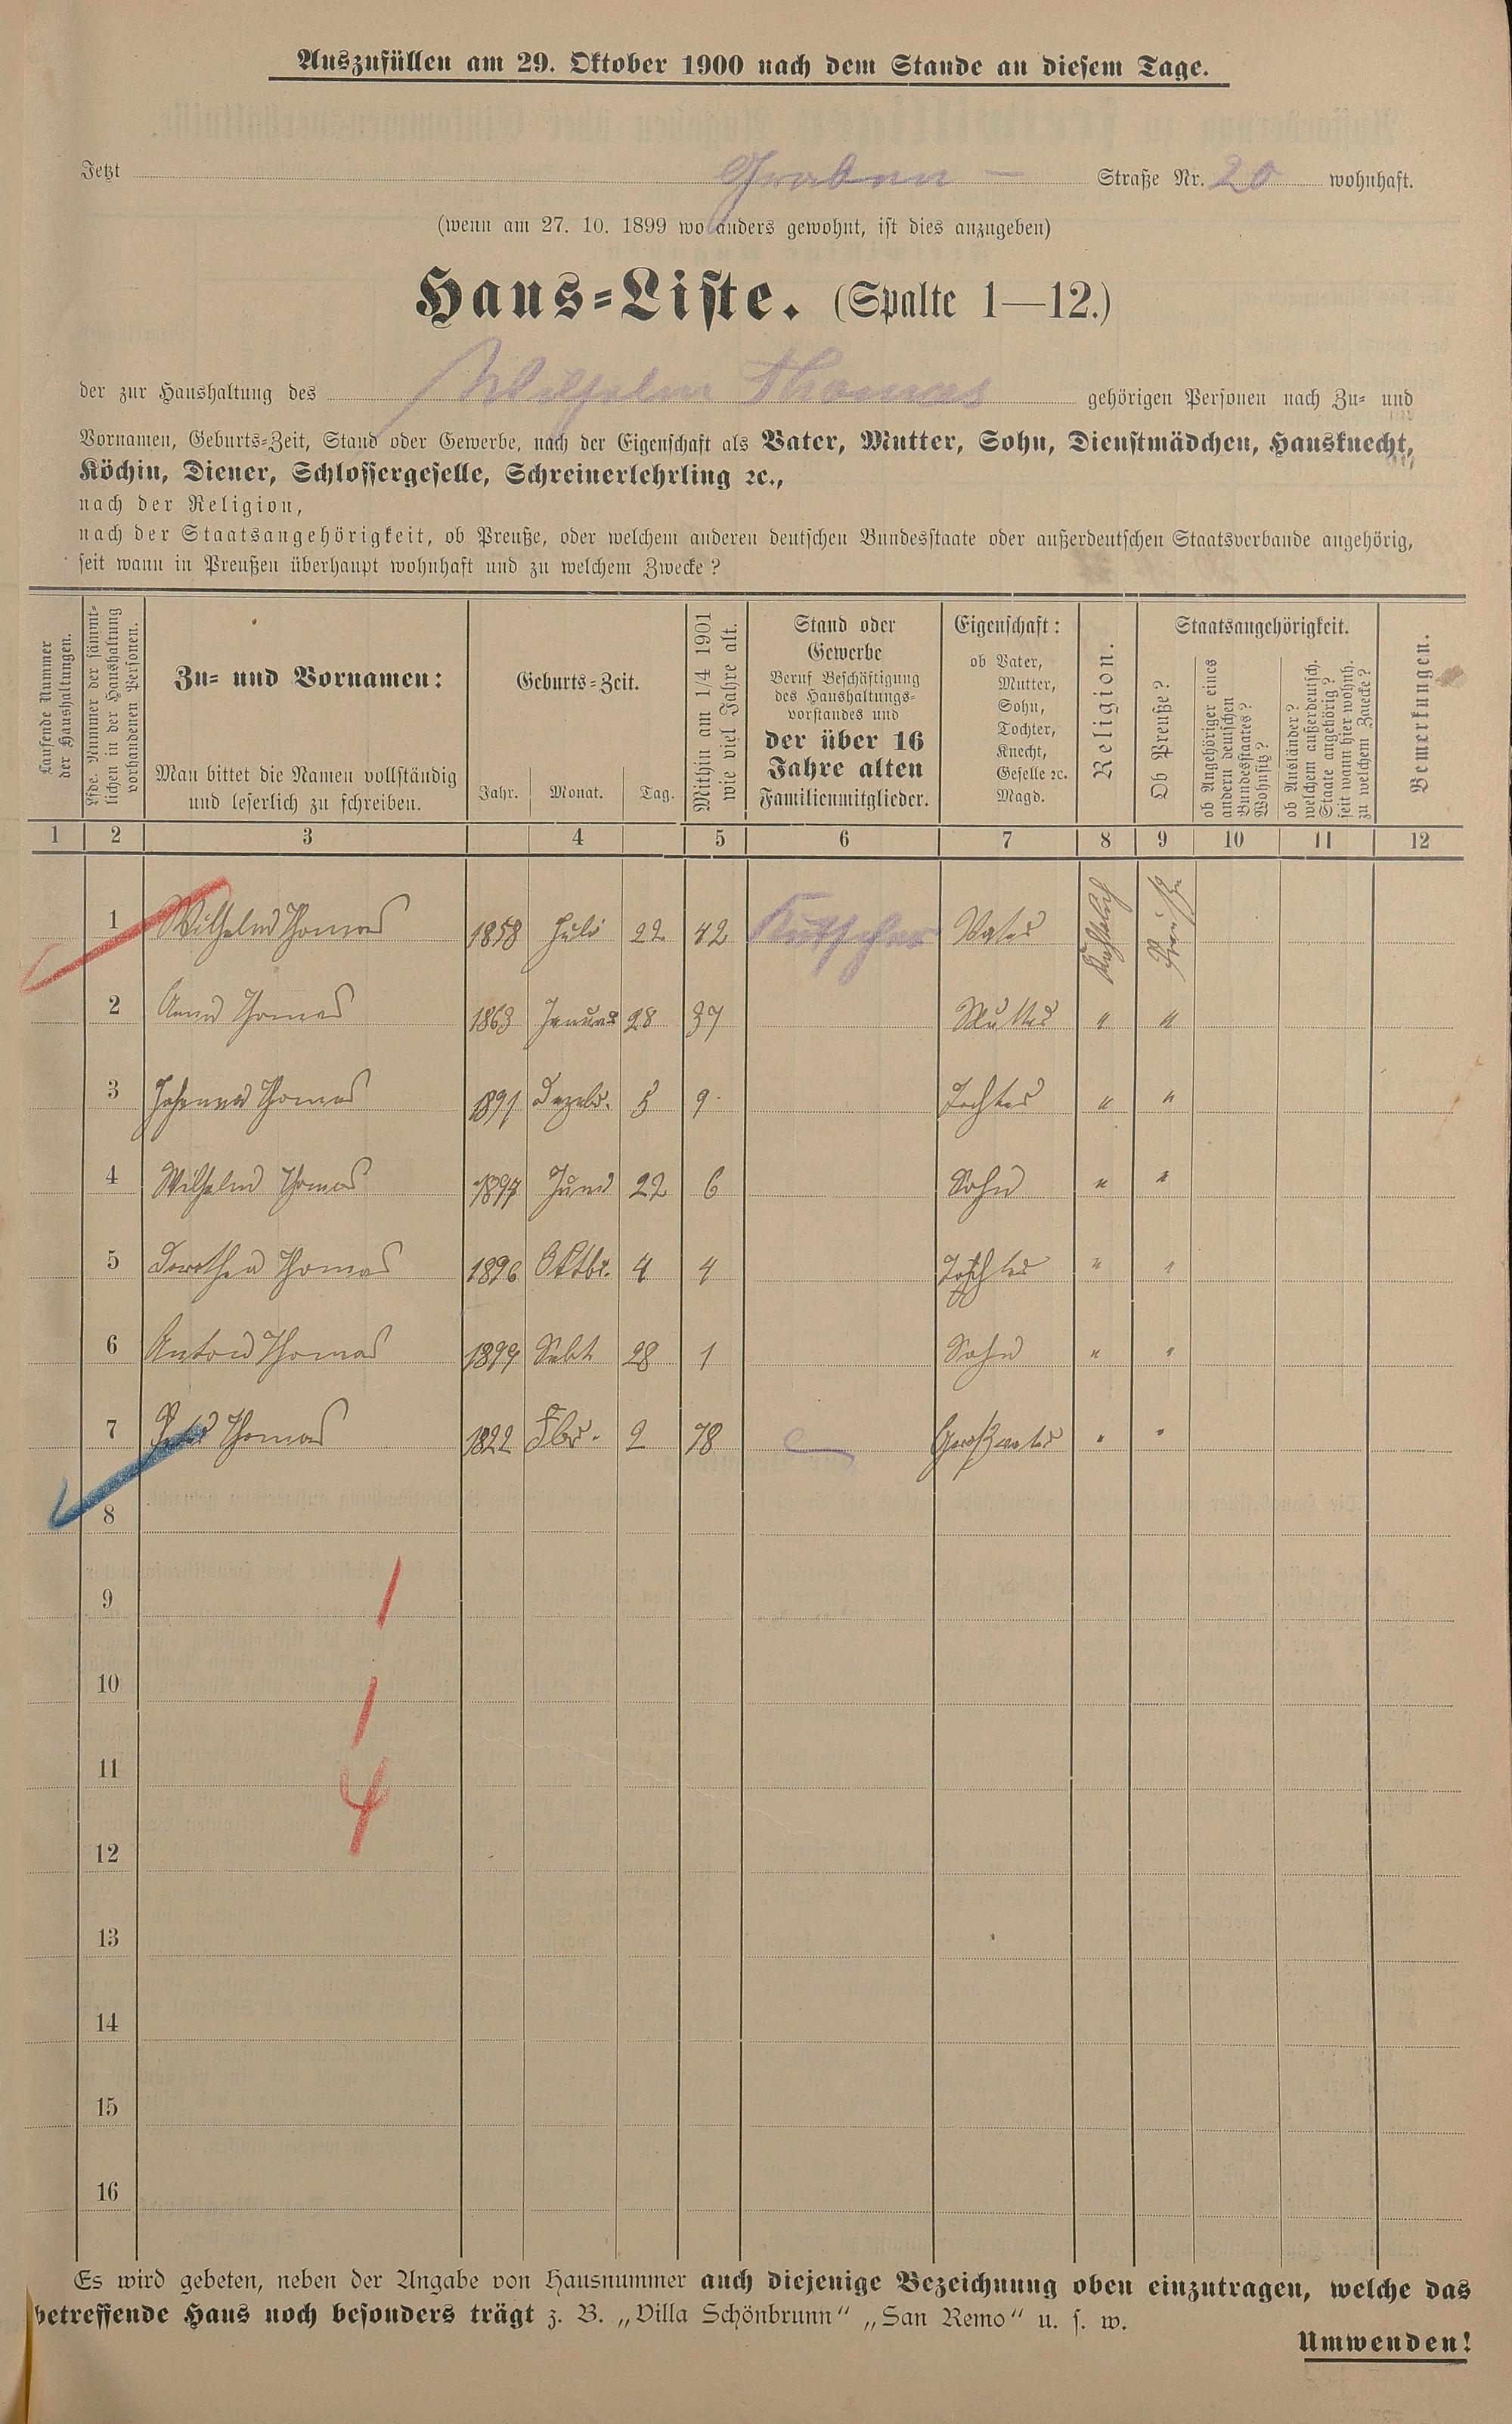 Auszufüllen am 29. Oktober 1900 nach dem Stande an diesem Tage.
Jetzt Graben- Straße Nr. 20 wohnhaft.
(wenn am 27. 10. 1899 wo anders gewohnt, ist dies anzugeben)
Haus-Liste. (Spalte 1—12.)
der zur Haushaltung des Wilhelm Thomas gehörigen Personen nach Zu- und
Vornamen, Geburts-Zeit, Stand oder Gewerbe, nach der Eigenschaft als Vater, Mutter, Sohn, Dienstmädchen, Hausknecht,
Köchin, Diener, Schlossergeselle, Schreinerlehrling ꝛc.,
nach der Religion,
nach der Staatsangehörigkeit, ob Preuße, oder welchem anderen deutschen Bundesstaate oder außerdeutschen Staatsverbande angehörig,
seit wann in Preußen überhaupt wohnhaft und zu welchem Zwecke?
Laufende Nummer
der Haushaltungen.
Lfde. Nummer der sämmt-
lichen in der Haushaltung
vorhandenen Personen.
Zu- und Vornamen:
Man bittet die Namen vollständig
und leserlich zu schreiben.
Geburts-Zeit.
Jahr. Monat. Tag.
Mithin am 1/4 1901
wie viel Jahre alt.
Stand oder
Gewerbe
Beruf Beschäftigung
des Haushaltungs-
vorstandes und
der über 16
Jahre alten
Familienmitglieder.
Eigenschaft:
ob Vater,
Mutter,
Sohn,
Tochter,
Knecht,
Geselle ꝛc.
Magd.
Religion.
Staatsangehörigkeit.
Ob Preuße?
ob Angehöriger eines
andern deutschen
Bundesstaates?
Wohnsitz?
ob Ausländer?
welchem außerdeutsch.
Staate angehörig?
seit wann hier wohnh.
zu welchem Zwecke?
Bemerkungen.
1 2 3 4 5 6 7 8 9 10 11 12
1 Wilhelm Thomas 1858 Juli 22 42 Kutscher Vater Katholisch Preuße
2 Anna Thomas 1863 Januar 28 37 Mutter " "
3 Johanna Thomas 1891 Dezebr. 5 9 Tochter " "
4 Wilhelm Thomas 1894 Juni 22 6 Sohn " "
5 Dorothea Thomas 1896 Oktbr. 4 4 Tochter " "
6 Anton Thomas 1899 Sebt 28 1 Sohn " "
7 Peter Thomas 1822 Fbr. 2 78 Großvater " "
8
9 1
10 1
11
4
12
13
14
15
16
Es wird gebeten, neben der Angabe von Hausnummer auch diejenige Bezeichnung oben einzutragen, welche das
betreffende Haus noch besonders trägt z. B. „Villa Schönbrunn“ „San Remo“ u. s. w.
Umwenden!